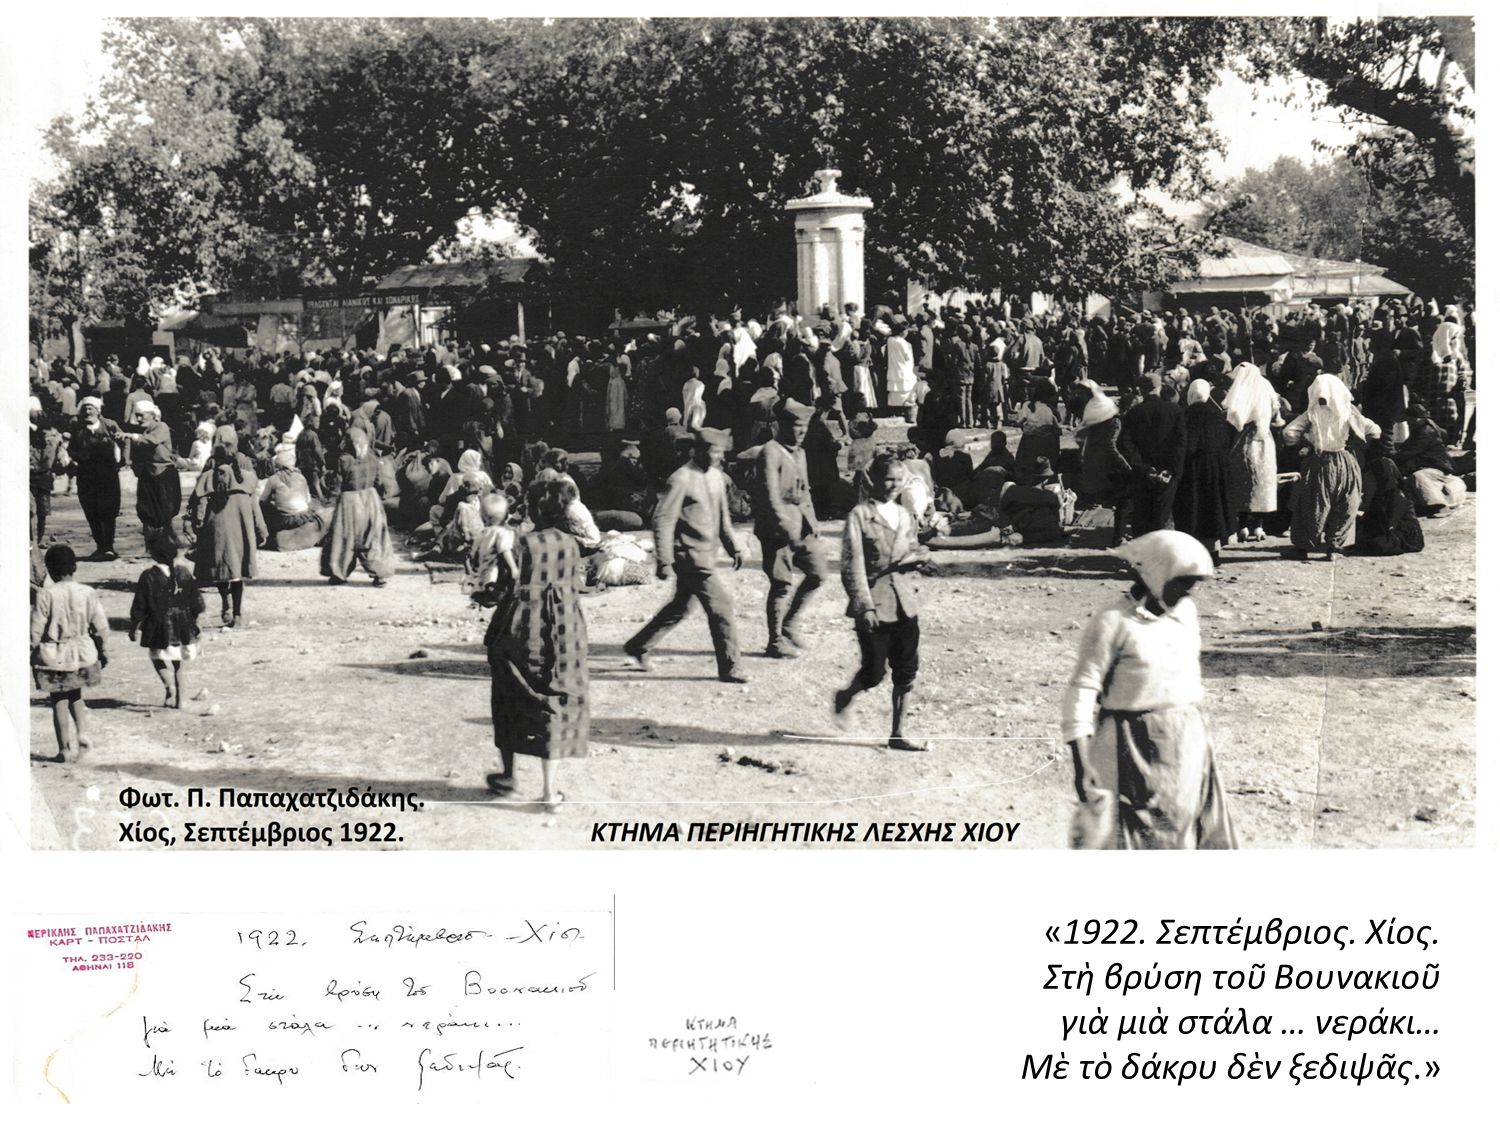 ΠΩΛΟΥΝΤΑΙ ΛΙΑΝΙΚΩΣ ΚΑΙ ΧΟΝΔΡΙΚΩΣ
Φωτ. Π. Παπαχατζιδάκης.
Χίος, Σεπτέμβριος 1922.
ΚΤΗΜΑ ΠΕΡΙΗΓΗΤΙΚΗΣ ΛΕΣΧΗΣ ΧΙΟΥ
ΠΕΡΙΚΛΗΣ ΠΑΠΑΧΑΤΖΙΔΑΚΗΣ
ΚΑΡΤ - ΠΟΣΤΑΛ
ΤΗΛ. 233-220
ΑΘΗΝΑΙ 118
1922. Σεπτέμβριος - Χίος
Στὴ βρύση τοῦ Βουνακιοῦ
γιὰ μιὰ στάλα ... νεράκι...
Μὲ τὸ δάκρυ δὲν ξεδιψᾶς.
ΚΤΗΜΑ
ΠΕΡΙΗΓΗΤΙΚΗΣ
ΧΙΟΥ
«1922. Σεπτέμβριος. Χίος.
Στὴ βρύση τοῦ Βουνακιοῦ
γιὰ μιὰ στάλα ... νεράκι...
Μὲ τὸ δάκρυ δὲν ξεδιψᾶς.»